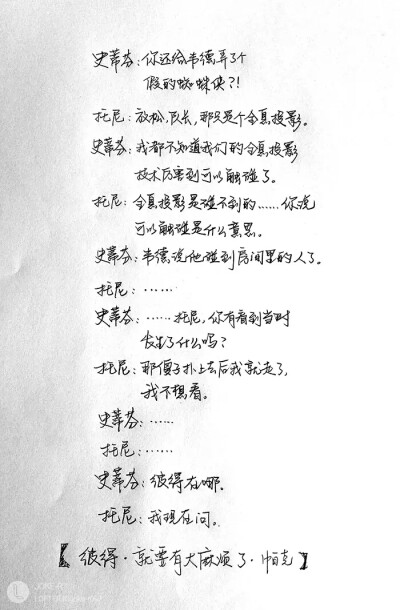 史蒂芬：你还给韦德弄了个
假的蜘蛛侠？！
托尼：放松，队长，那只是个全息投影。
史蒂芬：我都不知道我们的全息投影
技术厉害到可以触碰了。
托尼：全息投影是碰不到的……你说
可以触碰是什么意思。
史蒂芬：韦德说他碰到房间里的人了。
托尼：……
史蒂芬：……托尼，你有看到当时
发生了什么吗？
托尼：那傻子扑上去后我就走了，
我不想看。
史蒂芬：……
托尼：……
史蒂芬：彼得在哪.
托尼：我现在问。
【彼得·就要有大麻烦了·帕克】